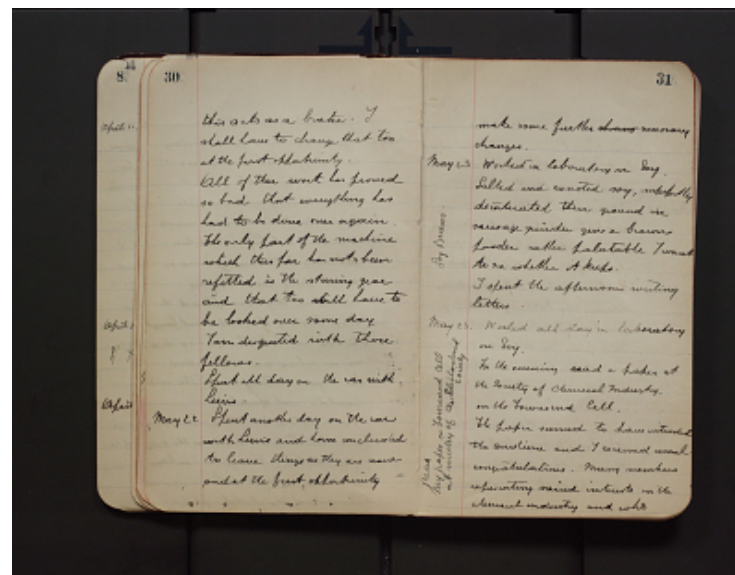 8
April
April
April
30
this acts as a brake. I
shall have to change that too
at the first opportunity.
All of this work has proved
so bad that everything has
had to be done over again.
The only part of the machine
which thus far has not been
refitted is the steering gear
and that too shall have to
be looked over some day
I am disgusted with those
fellows.
Spent all day on the car with
Lewis.
May 22 Spent another day on the car
with Lewis and have concluded
to leave things as they are now
and at the first opportunity
31
make some further necessary
changes.
May 23 Worked in laboratory on Soy.
and roasted soy,
then ground in
sausage grinder gives a brown
powder rather palatable I want
to see whether it keeps.
I spent the afternoon writing
letters.
May 23. Worked all day in laboratory
on Soy.
In the evening read a paper at
the Society of Chemical Industry
on the Townsend Cell.
The paper seemed to have interested
the audience and I received usual
congratulations. Many members
representing varied interests in the
chemical industry and who
Soy Beans
Read
my paper on Townsend Cell
at meeting of
Society